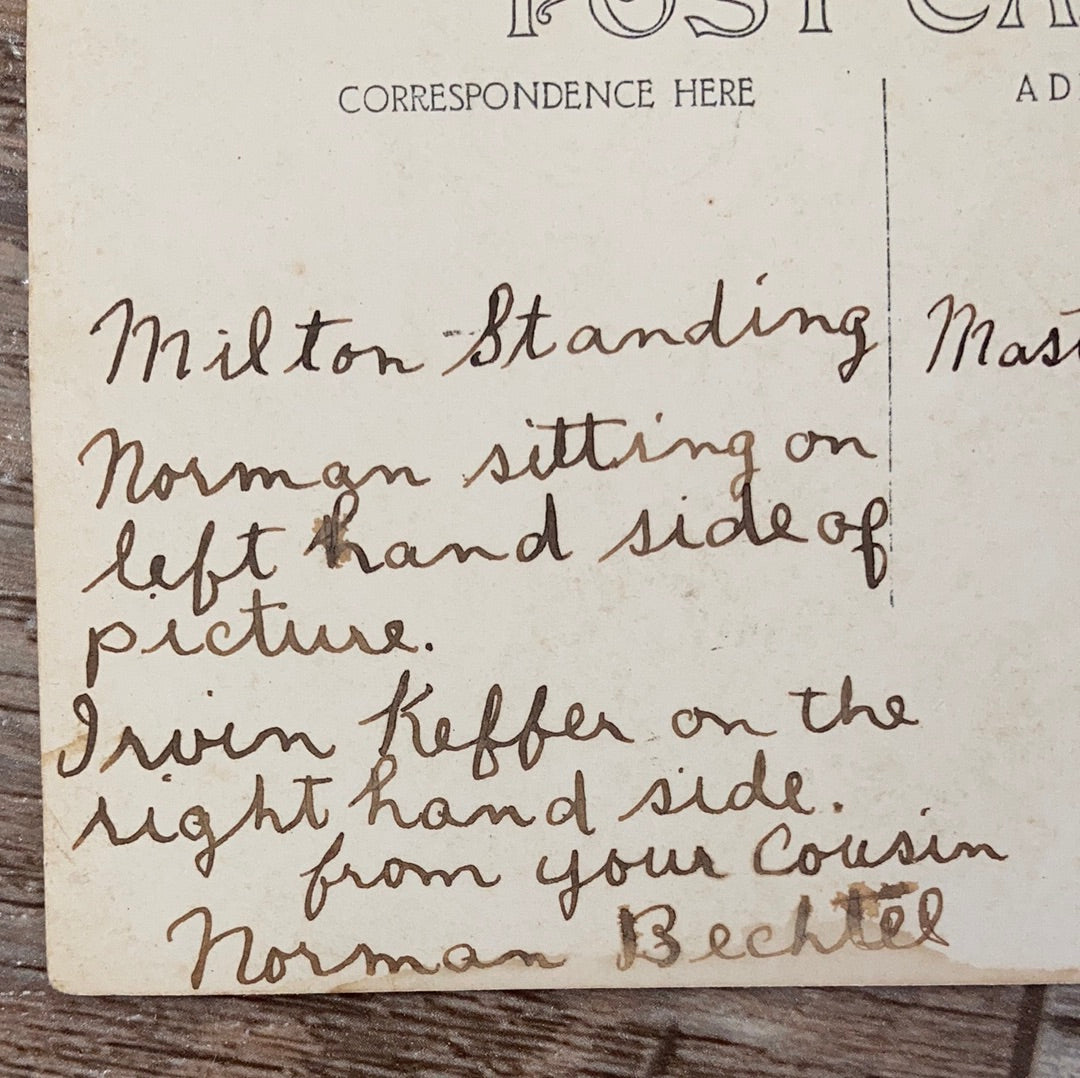 POST CA
CORRESPONDENCE HERE
AD
Milton Standing
Mast
Norman sitting on
left hand side of
picture.
Irvin Keffer on the
right hand side.
from your Cousin
Norman Bechtel